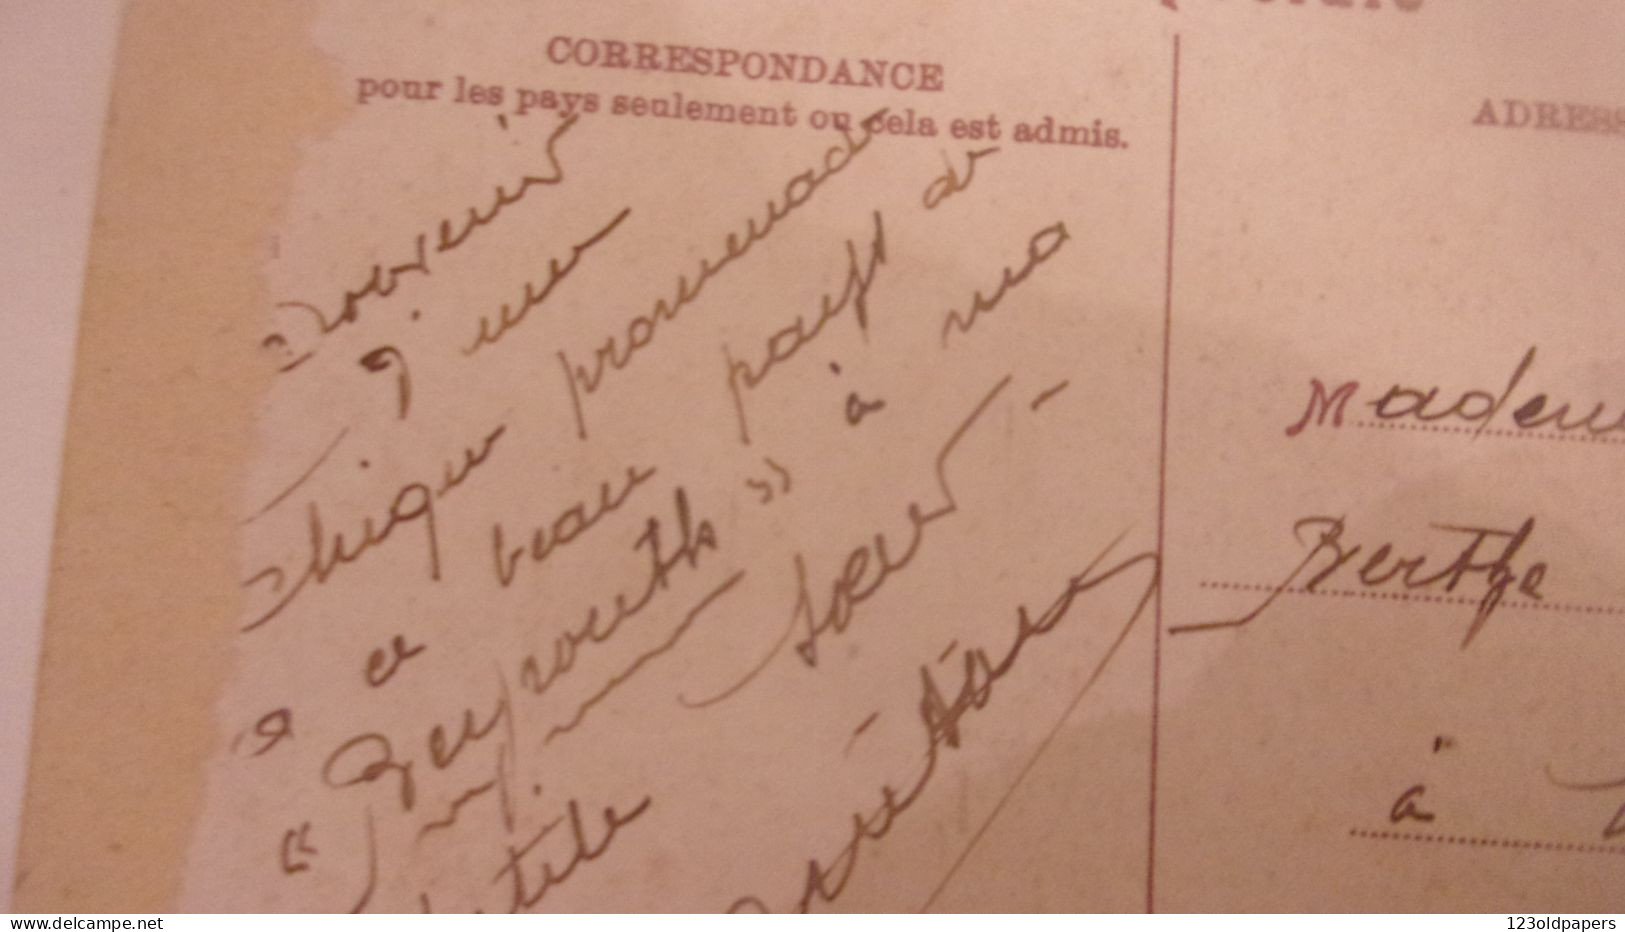 CORRESPONDANCE
pour les pays seulement ou cela est admis.
ADRESS
Souvenir
d'une
chique promenade
à ce beau pays de
" Beyrouth " à ma
petite soeur -
Madem
Berthe
à
123oldpapers